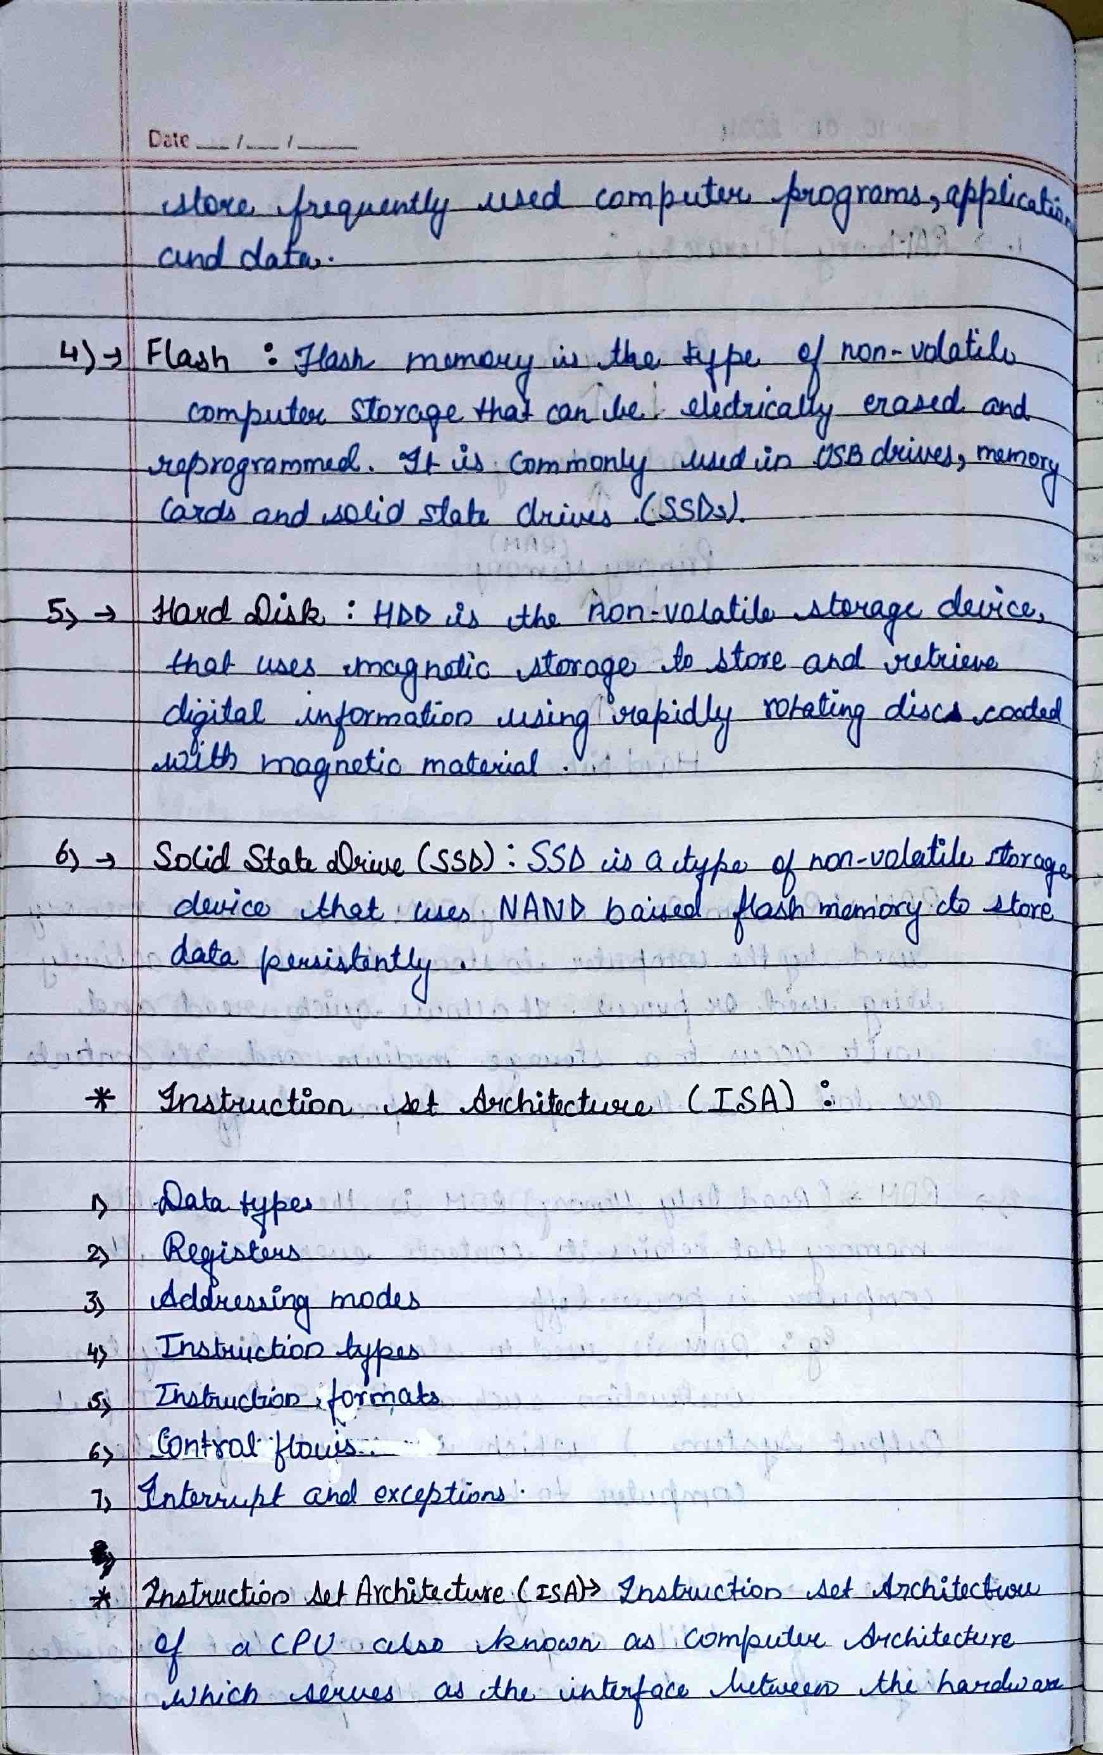 Date __/__/____
store frequently used computer programs, application
and data.
4) → Flash : Flash memory is the type of non-volatile
computer storage that can be electrically erased and
reprogrammed. It is commonly used in USB drives, memory
cards and solid state drives (SSDs).
5) → Hard Disk : HDD is the non-volatile storage device,
that uses magnetic storage to store and retrieve
digital information using rapidly rotating discs coated
with magnetic material.
6) → Solid State Drive (SSD) : SSD is a type of non-volatile storage
device that uses NAND baised flash memory to store
data persistently.
* Instruction set Architecture (ISA) :
1) Data types
2) Registers
3) Addressing modes
4) Instruction types
5) Instruction formats
6) Control flows.
7) Interrupt and exceptions.
* Instruction Set Architecture (ISA)→ Instruction set Architecture
of a CPU also known as computer Architecture
which serves as the interface between the hardware